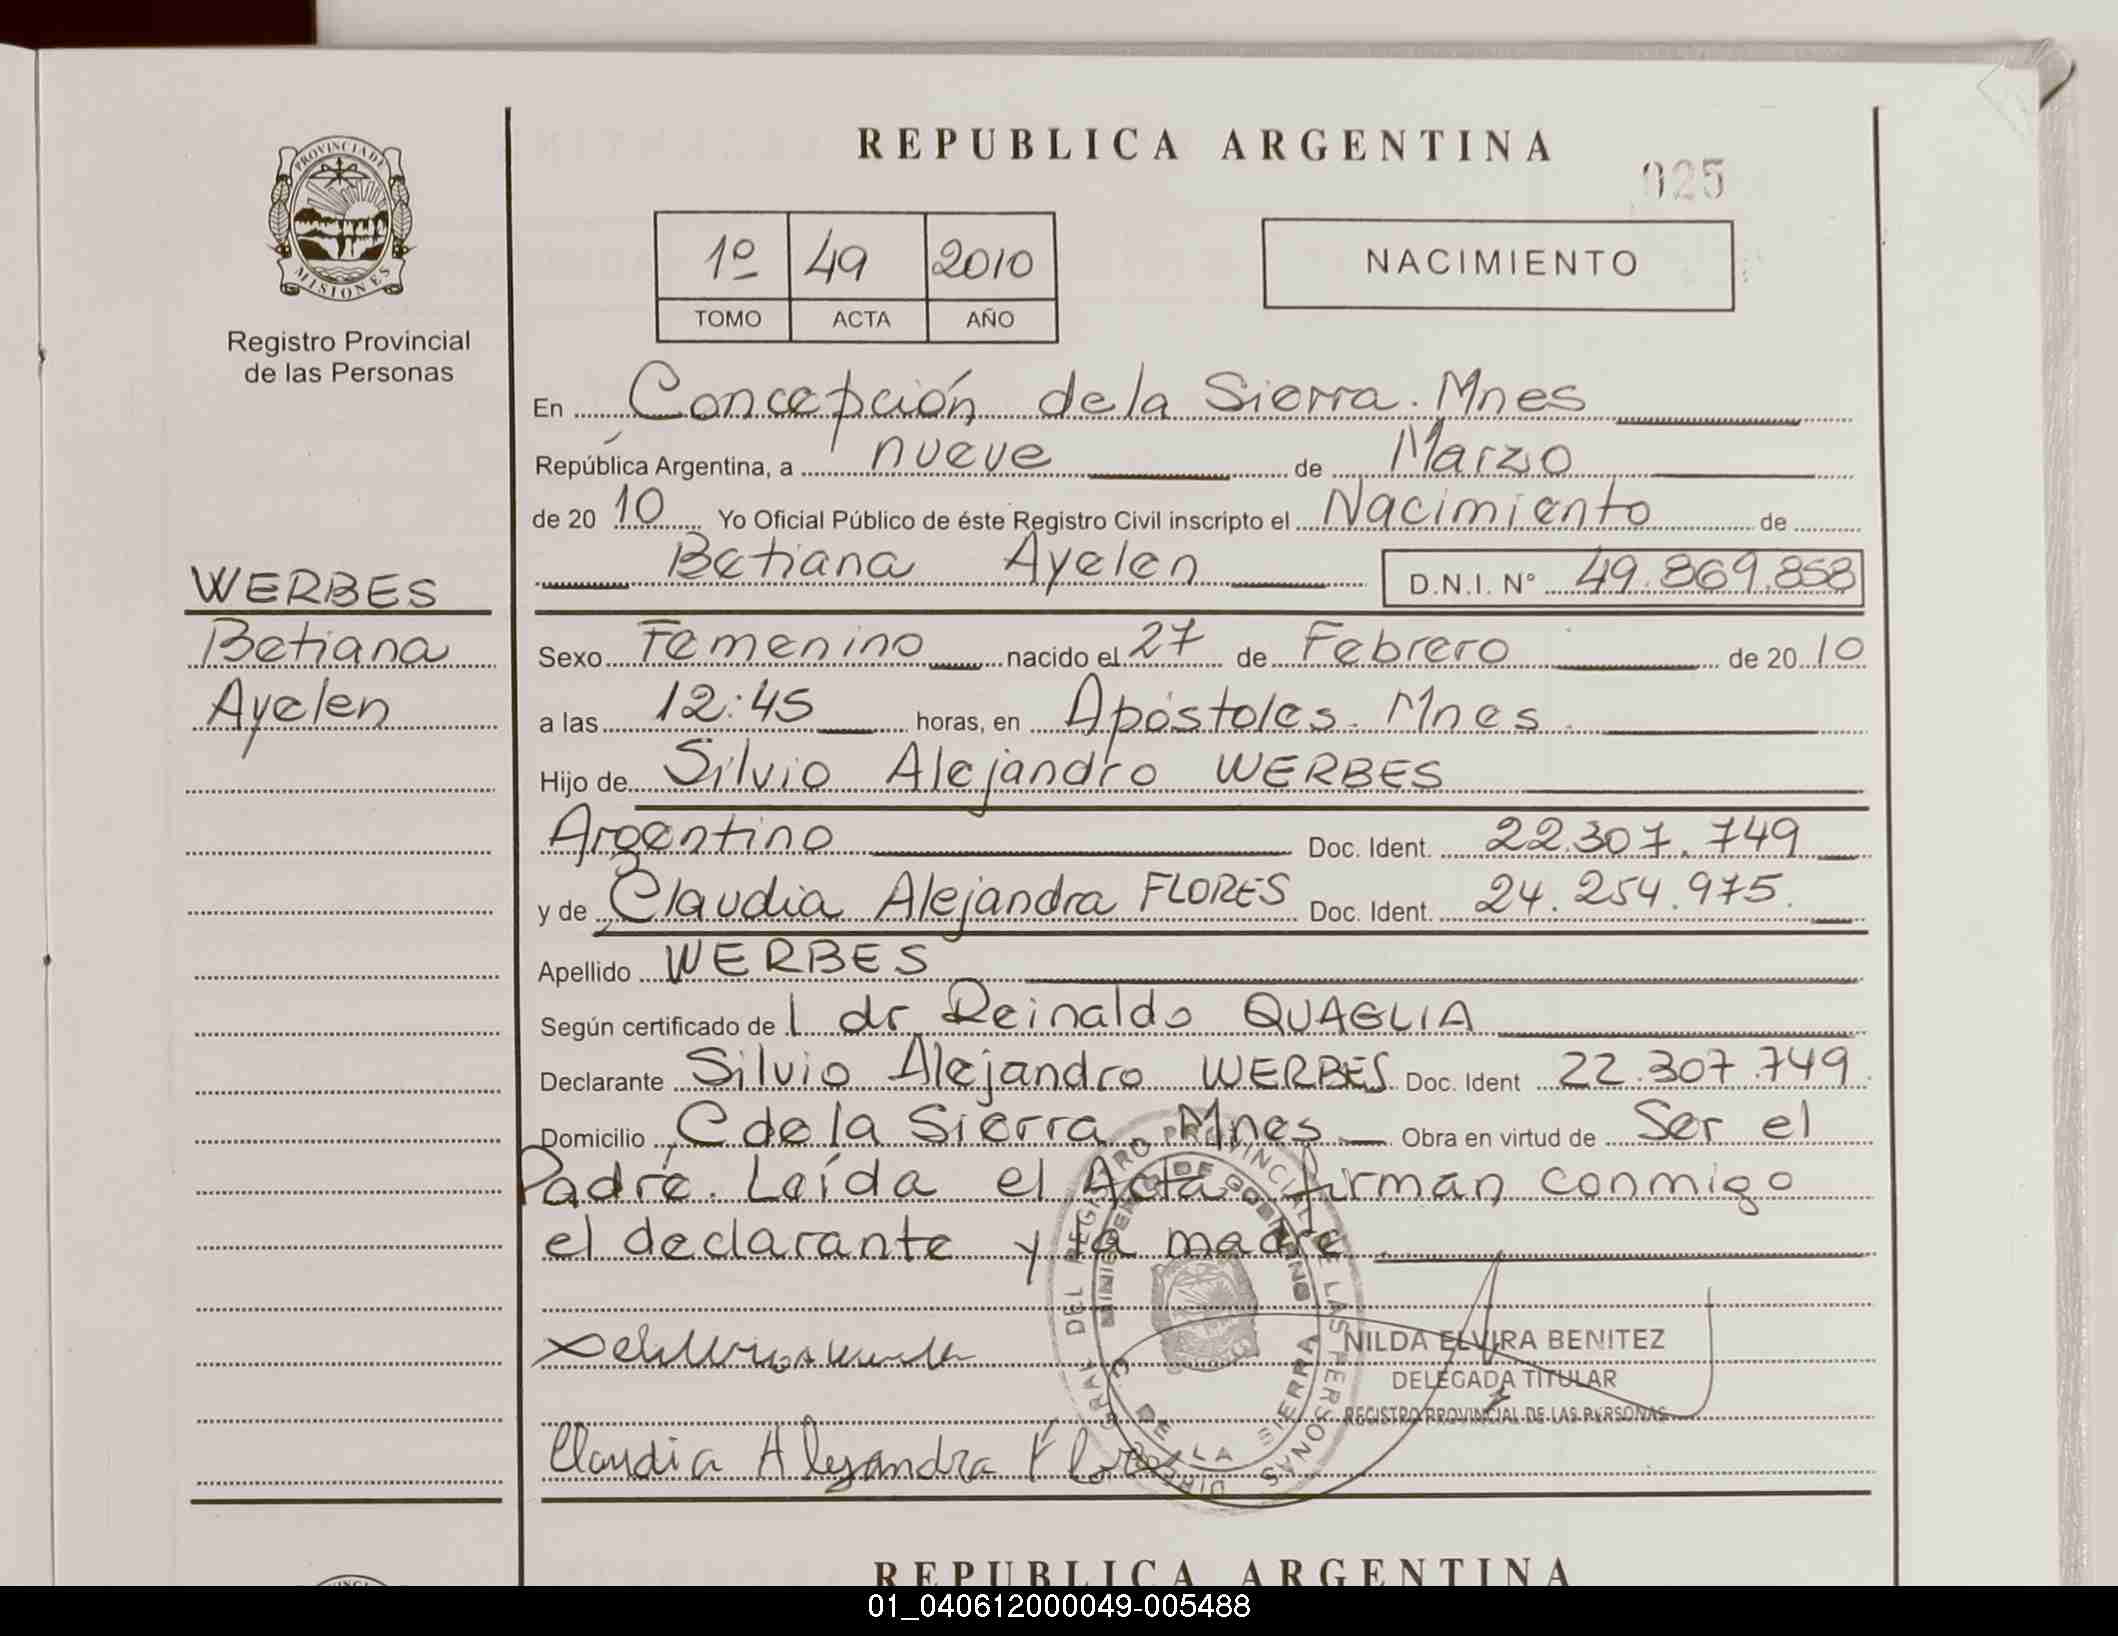 REPUBLICA ARGENTINA
025
PROVINCIA DE
MISIONES
Registro Provincial
de las Personas
1º 49 2010
TOMO ACTA AÑO
NACIMIENTO
En Concepción de la Sierra. Mnes
República Argentina, a nueve de Marzo
de 20 10 Yo Oficial Público de éste Registro Civil inscripto el Nacimiento de
Betiana Ayelen D.N.I. Nº 49.869.858
WERBES
Betiana
Ayelen
Sexo Femenino nacido el 27 de Febrero de 20 10
a las 12:45 horas, en Apóstoles. Mnes.
Hijo de Silvio Alejandro WERBES
Argentino Doc. Ident. 22.307.749
y de Claudia Alejandra FLORES Doc. Ident. 24.254.975.
Apellido WERBES
Según certificado de l dr Reinaldo QUAGLIA
Declarante Silvio Alejandro WERBES Doc. Ident 22.307.749.
Domicilio C de la Sierra. Mnes Obra en virtud de Ser el
Padre. Leída el Acta firman conmigo
el declarante y la madre.
DEL REGISTRO PROVINCIAL DE LAS PERSONAS
MINISTERIO DE GOBIERNO
C. DE LA SIERRA
NILDA ELVIRA BENITEZ
DELEGADA TITULAR
REGISTRO PROVINCIAL DE LAS PERSONAS
Claudia Alejandra Flores
REPUBLICA ARGENTINA
01_040612000049-005488